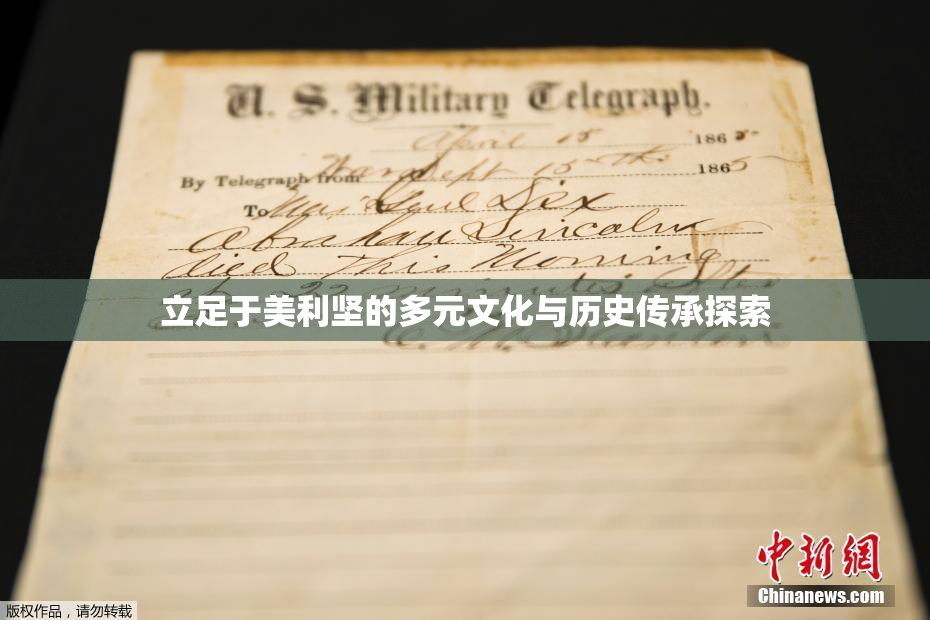 U. S. Military Telegraph.
April 15 1865
By Telegraph from War Dept 15th 1865
To Maj Genl Dix
Abraham Lincoln
died This Morning
at 22 minutes after
立足于美利坚的多元文化与历史传承探索
E. M. Stanton
中新網
Chinanews.com
版权作品，请勿转载